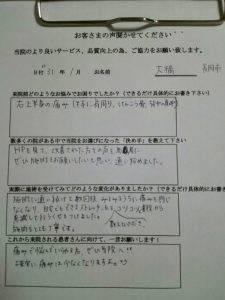 お客さまの声聞かせてください
当院のより良いサービス、品質向上の為、ご協力をお願い致します。
日付 31 年 1 月 お名前 大橋
来院前どのようなお悩みでお困りでしたか？（できるだけ具体的にお書き下さい）
右上半身の痛み（主に肩周り、けんこう骨、背中の痛み）
数多くの院がある中で当院をお選びになった「決め手」を教えて下さい
HPを見て、
ぜひ施術をお願いしたいと思い 通い始めました。
実際に施術を受けてみてどのような変化がありましたか？（できるだけ具体的にお書き
施術に通い続けて数回後、みるみるうちに痛みを感じ
なくなり、自宅でもできるストレッチも、コツコツ
実践して行こうとすすめました。
施術もとても丁寧です。
これから来院される患者さんに向けて、一言お願いします！
痛みで悩んでいる方、ぜひ当院へ!!
確実に痛みはなくなりますよ。